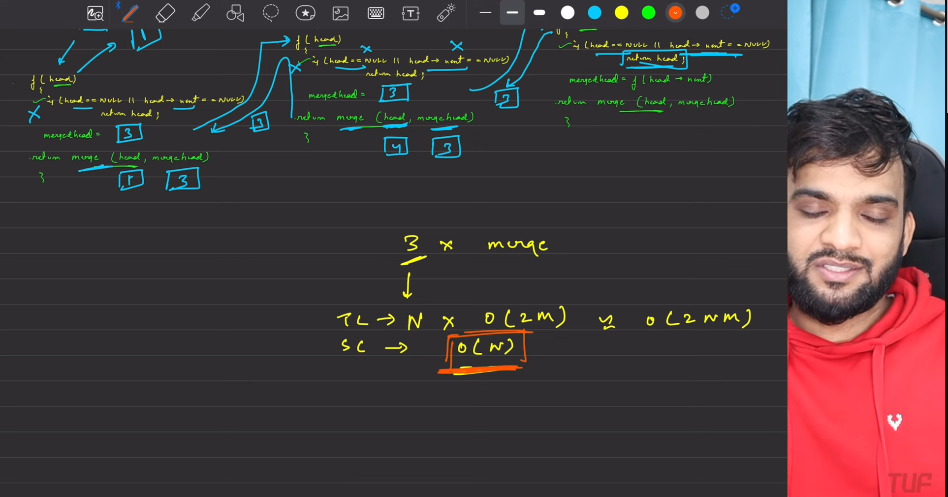 f(head)
{
if (head == NULL || head → next == NULL)
return head;
mergedhead = 3
return merge (head, mergehead)
}
1 3
3
f(head)
{
if (head == NULL || head → next == NULL)
return head;
mergedhead = 3
return merge (head, mergehead)
}
4 3
3
if (head == NULL || head → next == NULL)
return head;
mergedhead = f(head → next)
return merge (head, mergehead)
}
3 x merge
TC → N x O(2M) ≈ O(2NM)
SC → O(N)
TUF